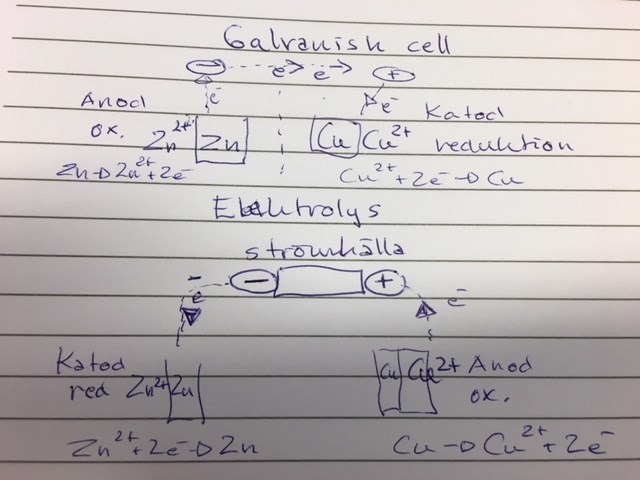 Galvanish cell
− e⁻ e⁻ +
e⁻ e⁻
Anod Katod
ox. Zn²⁺ Zn Cu Cu²⁺ reduktion
Zn → Zn²⁺ + 2e⁻ Cu²⁺ + 2e⁻ → Cu
Elektrolys
strömkälla
− − + 
e⁻ e⁻
Katod Cu Cu²⁺ Anod
red Zn²⁺ Zn ox.
Zn²⁺ + 2e⁻ → Zn Cu → Cu²⁺ + 2e⁻